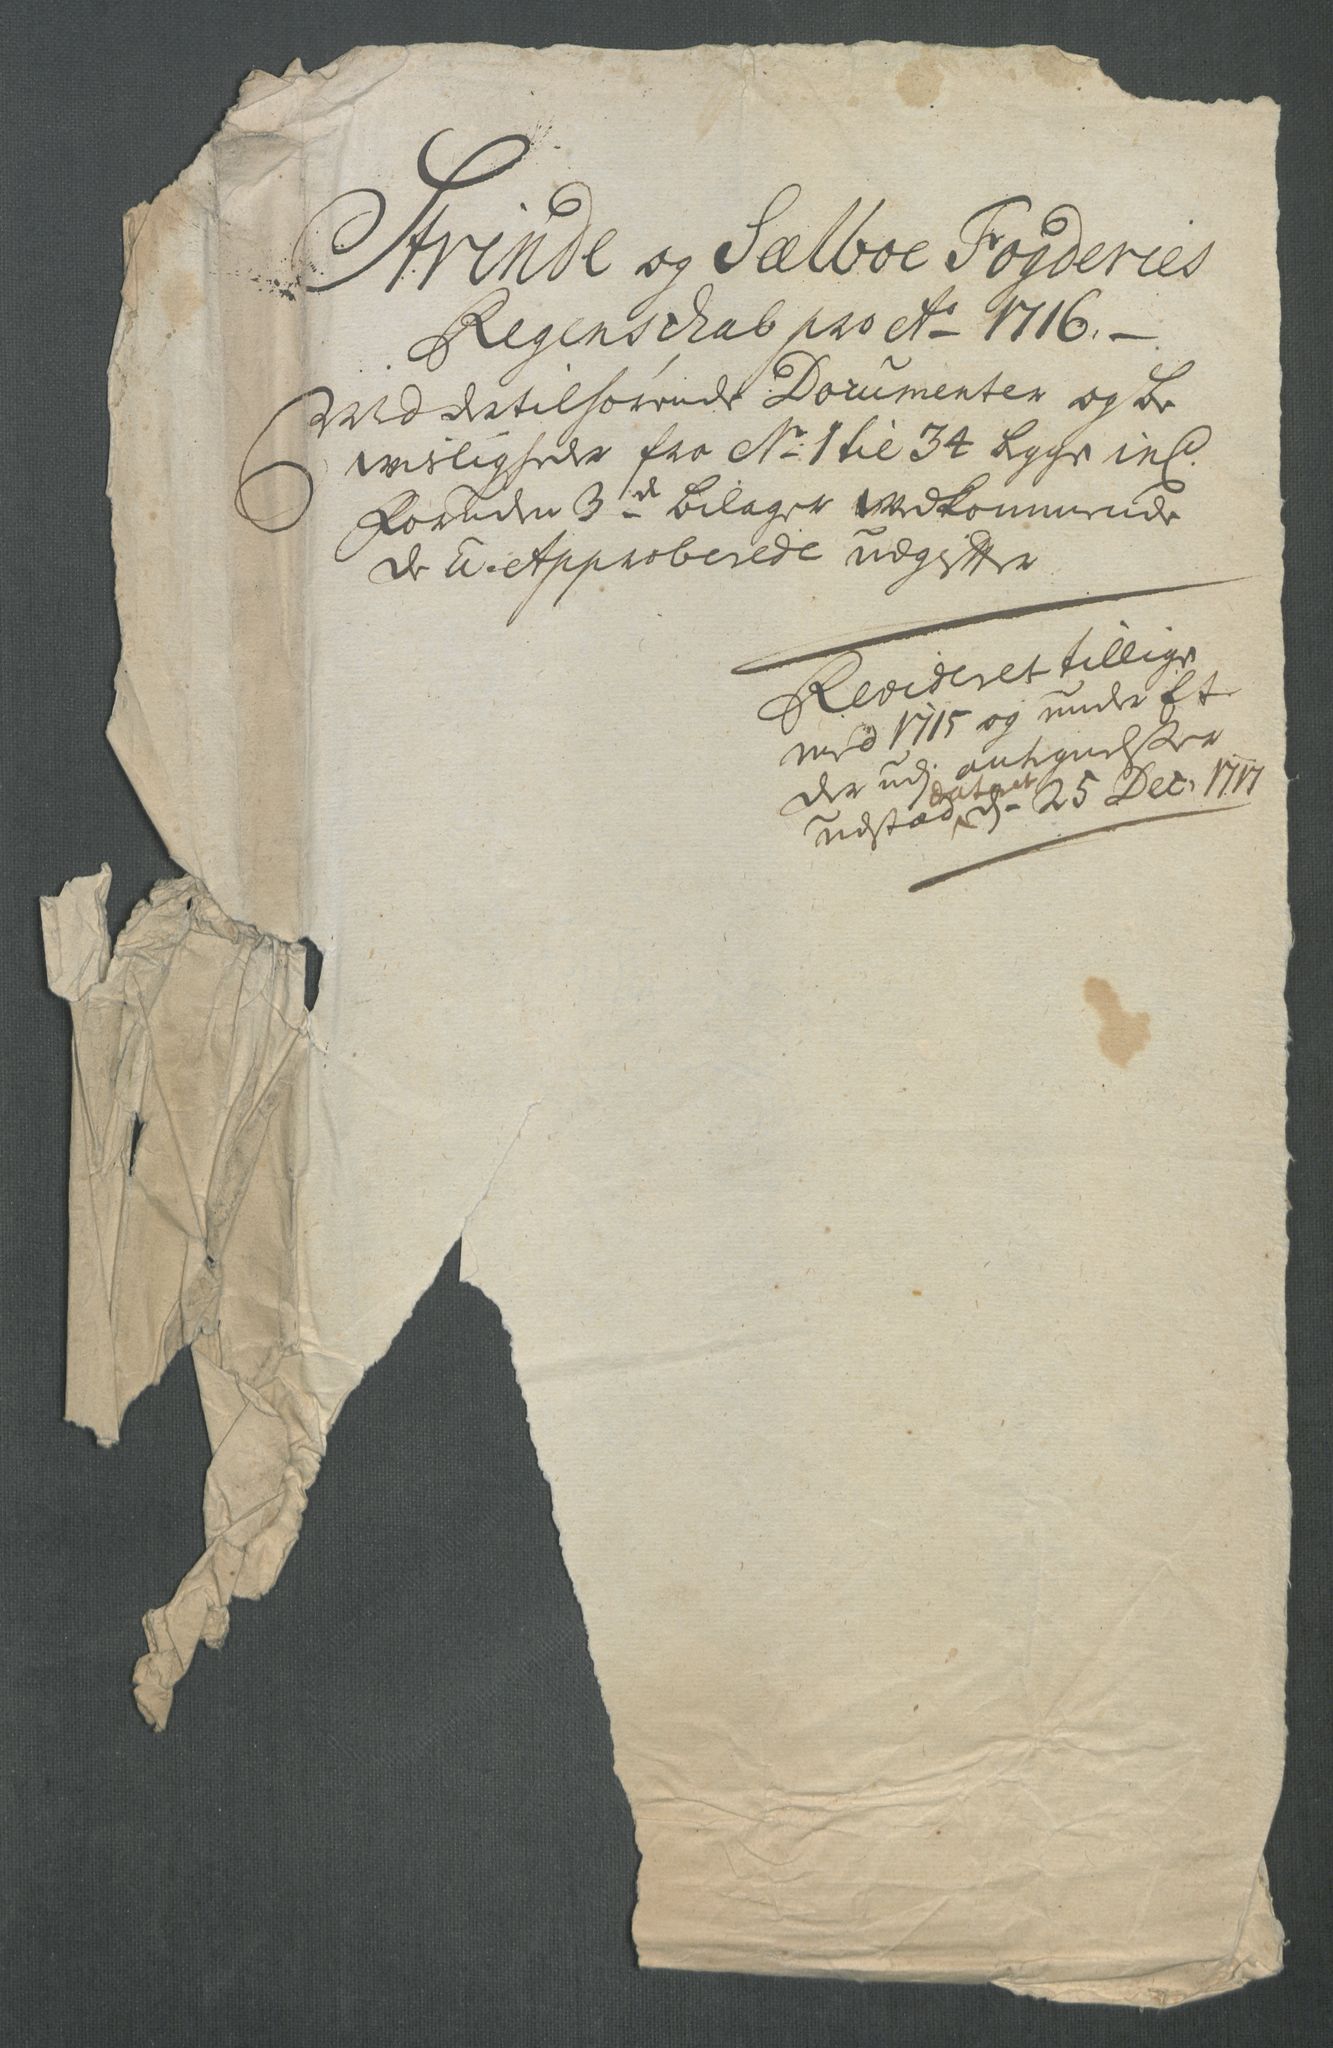 Strinde og Sælboe Fogderies
Regenschab pro Ao 1716. –
Med dertilhørende Documenter og be
wisligheder fra No 1 til 34 begge incl.
Foruden 3de bilager vedkommende
de u-Approberede udgifter
Revideret tillige
med 1715 og under Et
der udj antegnelsser
udstæd datret d. 25 Dec. 1717